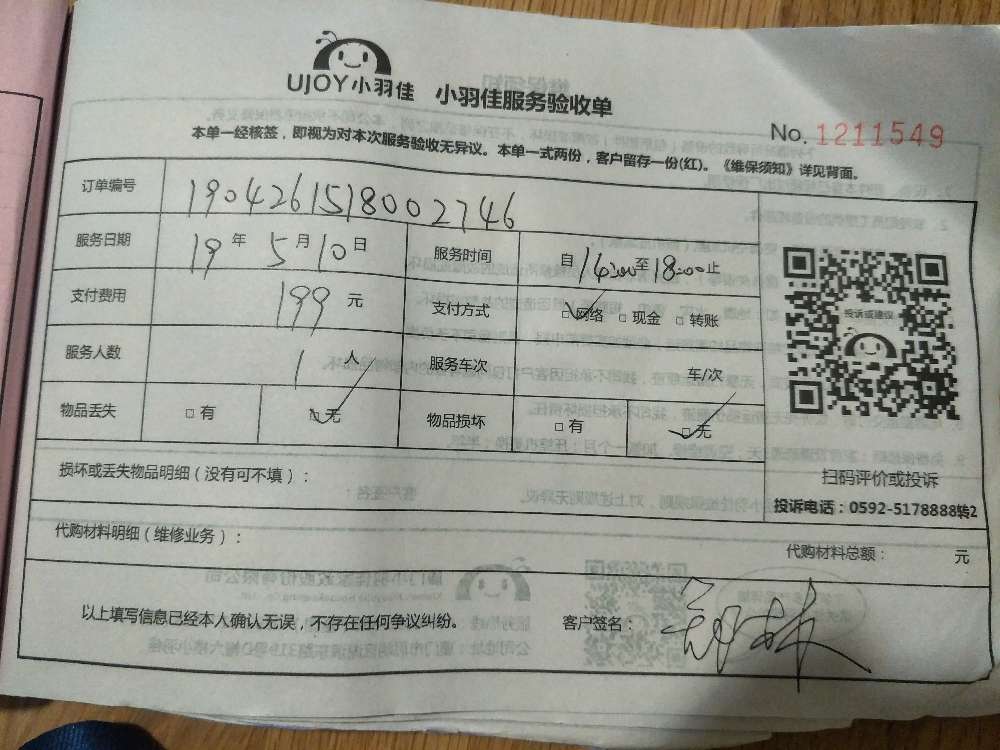 UJOY小羽佳 小羽佳服务验收单
No. 1211549
本单一经核签，即视为对本次服务验收无异议。本单一式两份，客户留存一份(红)。《维保须知》详见背面。
订单编号 1904261518002746
服务日期 19年5月10日 服务时间 自14:00至18:00止
支付费用 199元 支付方式 □网络 □现金 □转账
服务人数 1人 服务车次 车/次
物品丢失 □有 □无 物品损坏 □有 □无
投诉或建议
扫码评价或投诉
投诉电话：0592-5178888转2
损坏或丢失物品明细（没有可不填）：
代购材料明细（维修业务）：
代购材料总额： 元
以上填写信息已经本人确认无误，不存在任何争议纠纷。 客户签名：